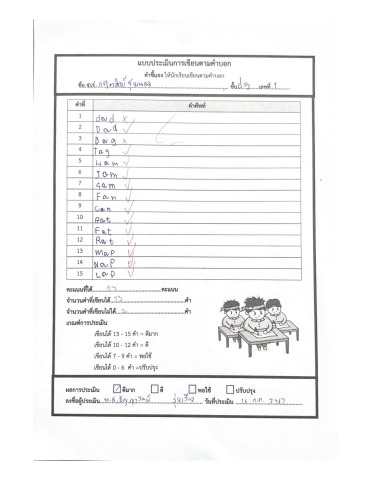 แบบประเมินการเขียนตามคำบอก
คำชี้แจง ให้นักเรียนเขียนตามคำบอก
ชื่อ ด.ช. ชั้น ป.1 เลขที่ 1
คำที่ คำศัพท์
1 dad ✗
2 Dad ✓
3 Dag ✗
4 Tag ✓
5 Ham ✓
6 Jam ✓
7 Sam ✓
8 Fan ✓
9 Can ✓
10 Bat ✓
11 Fat ✓
12 Rat ✓
13 Map ✓
14 Nap ✓
15 Lap ✓
คะแนนที่ได้ 13 คะแนน
จำนวนคำที่เขียนได้ 13 คำ
จำนวนคำที่เขียนไม่ได้ 2 คำ
เกณฑ์การประเมิน
เขียนได้ 13 - 15 คำ = ดีมาก
เขียนได้ 10 - 12 คำ = ดี
เขียนได้ 7 - 9 คำ = พอใช้
เขียนได้ 0 - 6 คำ =ปรับปรุง
ผลการประเมิน ☑ ดีมาก ☐ ดี ☐ พอใช้ ☐ ปรับปรุง
ลงชื่อผู้ประเมิน วันที่ประเมิน